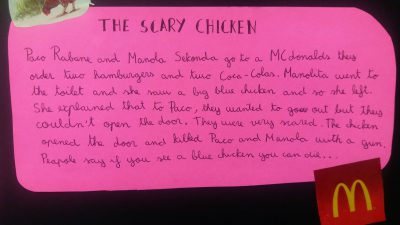 THE SCARY CHICKEN
Paco Rabane and Manola Sekonda go to a MCdonalds they
order two hamburgers and two Coca-Colas. Manolita went to
the toilet and she saw a big blue chicken and so she left.
She explained that to Paco, they wanted to goo out but they
couldn't open the door. They were very scared. The chicken
opened the door and killed Paco and Manola with a gun.
Peapole say if you see a blue chicken you can die...
M